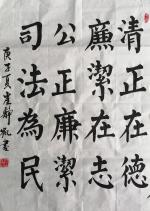 清正在德
廉潔在志
公正廉潔
司法為民
庚子夏崔靜凱書